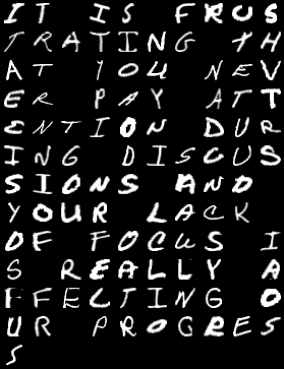 IT IS FRUS
TRATING TH
AT YOU NEV
ER PAY ATT
ENTION DUR
ING DISCUS
SIONS AND
YOUR LACK
OF FOCUS I
S REALLY A
FFECTING O
UR PROGRES
S